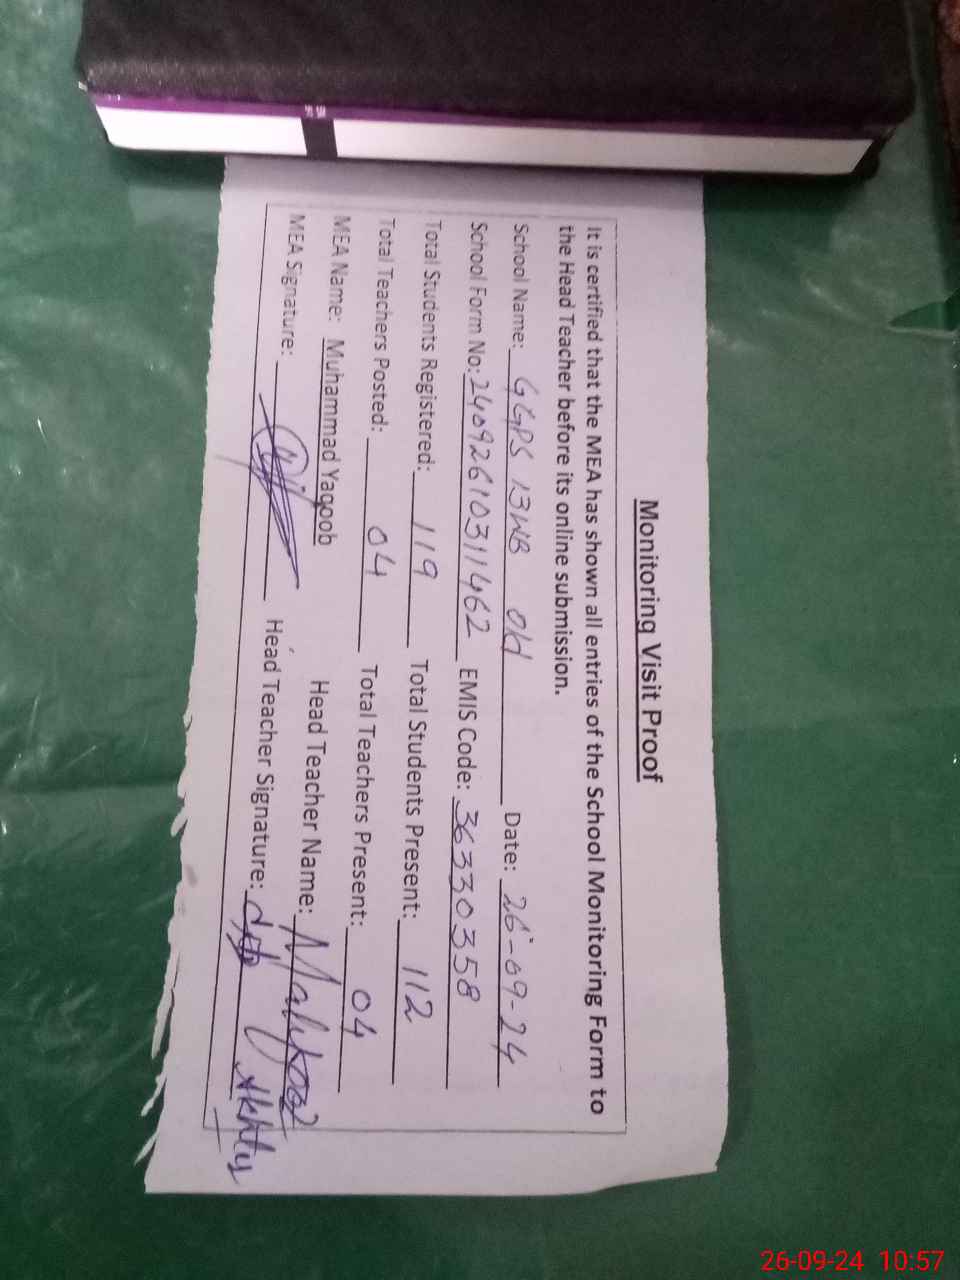 Monitoring Visit Proof
It is certified that the MEA has shown all entries of the School Monitoring Form to
the Head Teacher before its online submission.
School Name: GGPS 13WB Old Date: 26-09-24
School Form No: 24092610311462 EMIS Code: 36330358
Total Students Registered: 119 Total Students Present: 112
Total Teachers Posted: 04 Total Teachers Present: 04
MEA Name: Muhammad Yaqoob Head Teacher Name:
MEA Signature: Head Teacher Signature:
Akhter
26-09-24 10:57